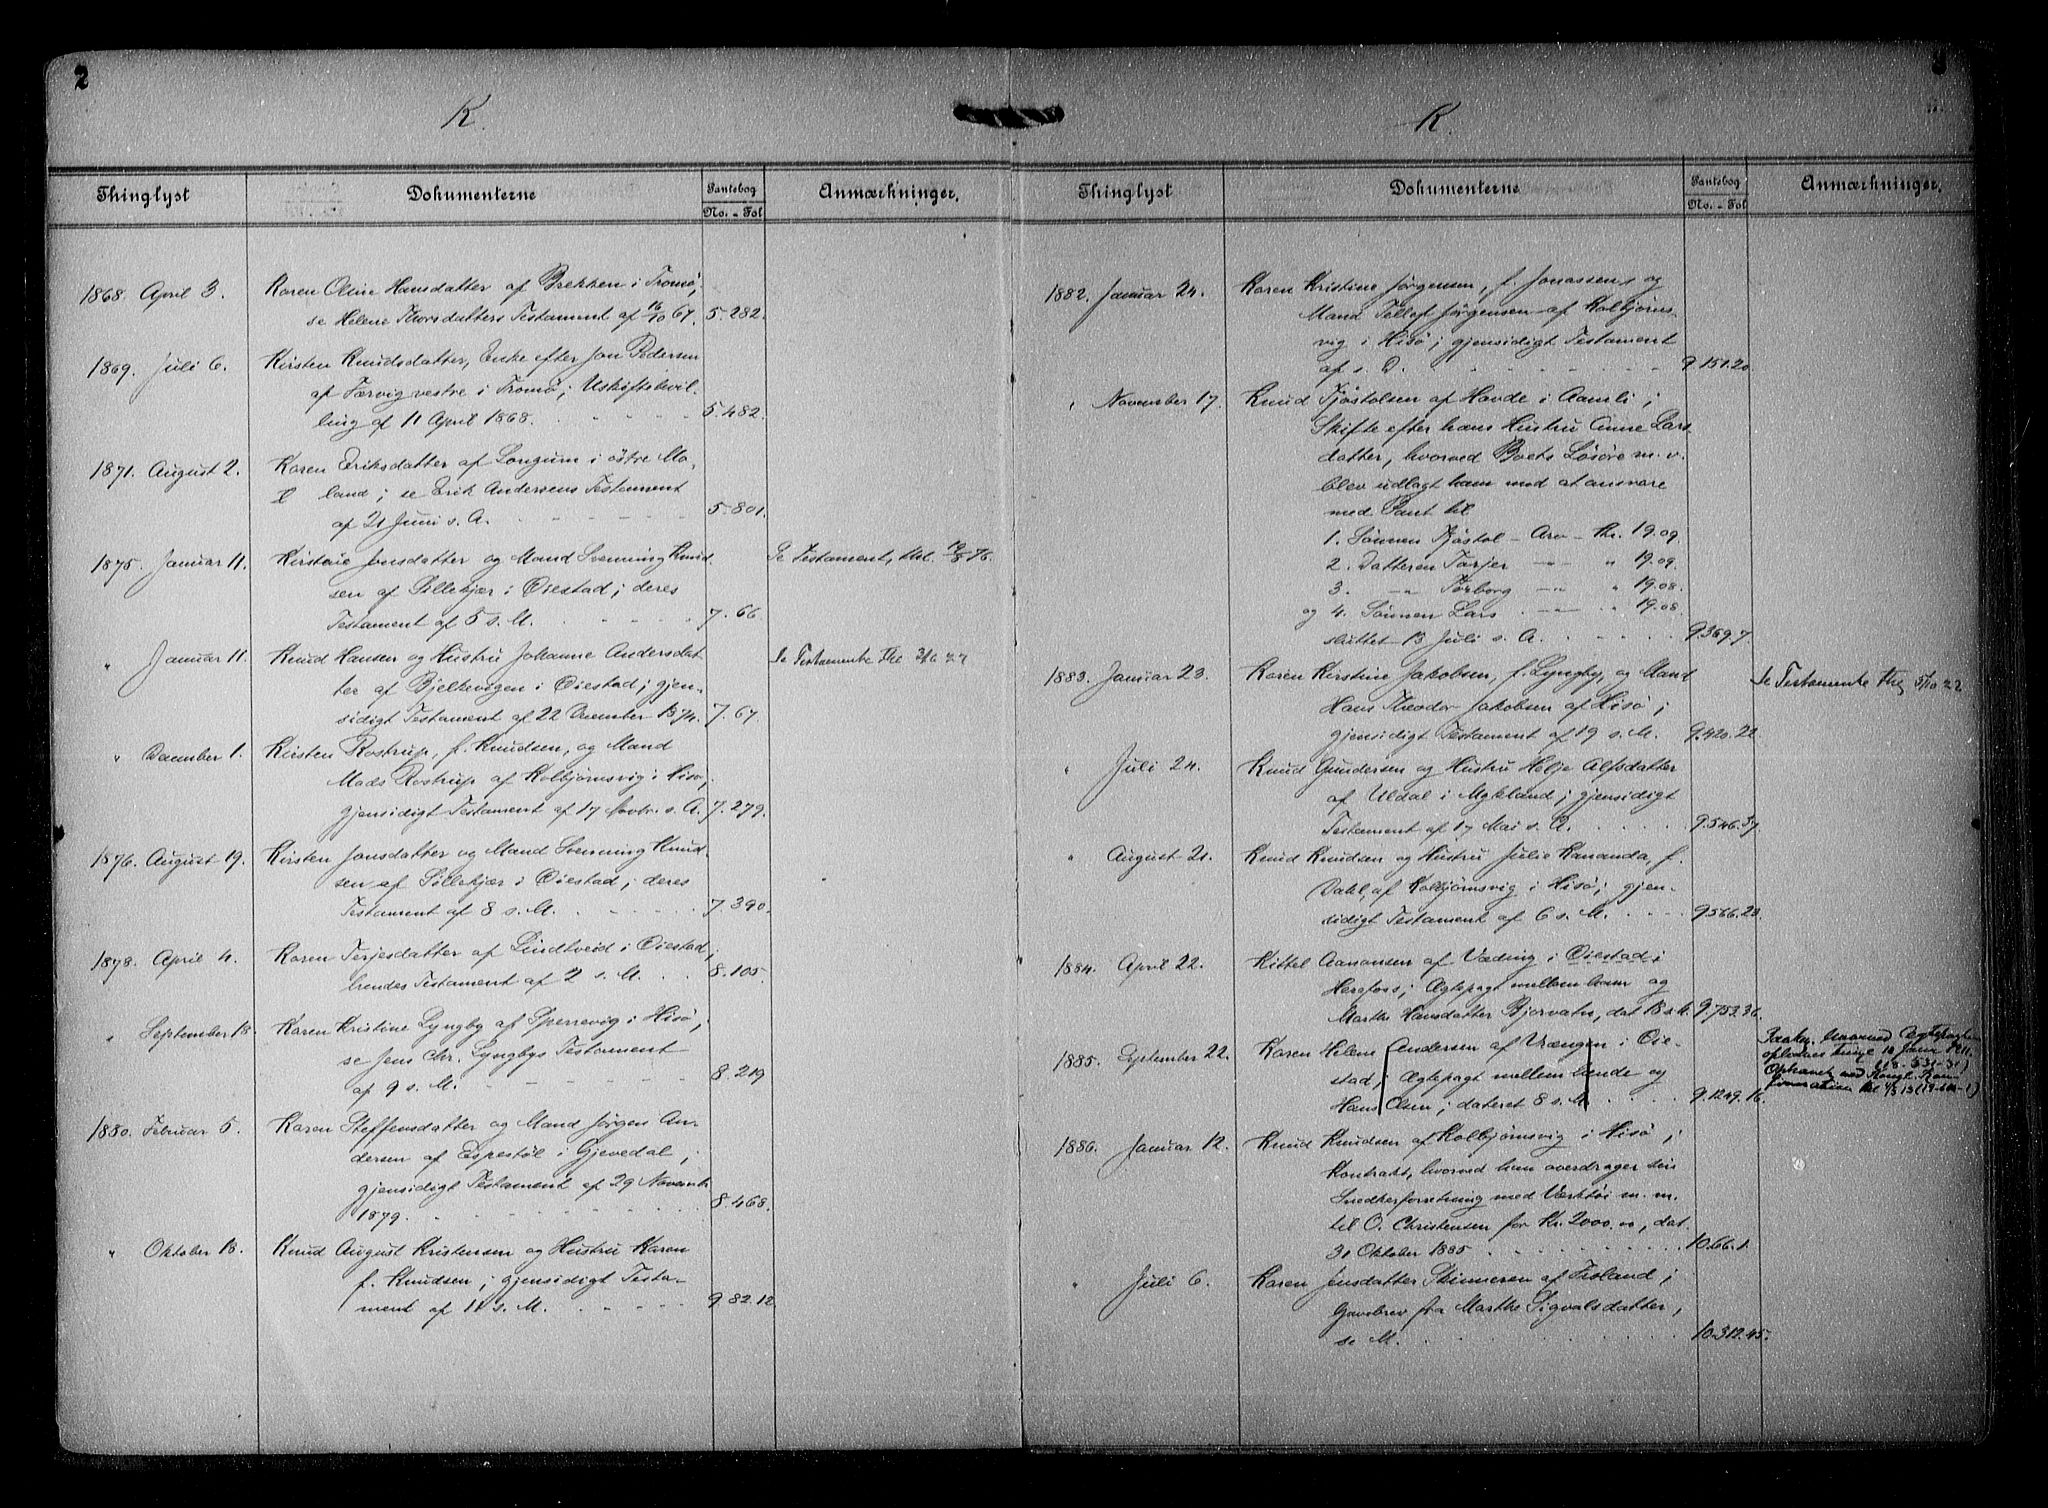 2
K.
Thinglyst
Dokumenterne
Pantebog
No. - Fol
Anmærkninger.
1868. April 3. Karen Oline Hansdatter af Brekken i Tromø;
se Helene Thorsdatters Testament af 16/10 67. 5. 282.
1869. Juli 6. Kirsten Knudsdatter, Enke efter Jon Pedersen
af Færvig vestre i Tromø; Uskiftebevil-
ling af 11 April 1868. 5. 482.
1871. August 2. Karen Eriksdatter af Longum i østre Mo-
land; se Erik Andersens Testament
af 21 Juni s. A. 5. 801.
1875. Januar 11. Kirstine Jonsdatter og Mand Svenning Knud-
sen af Sillekjær i Øiestad; deres
Testament af 5 s. M. 7. 66
Se Testament, thl. 19/8 76.
" Januar 11. Knud Hansen og Hustru Johanne Andersdat-
ter af Bjelkevigen i Øiestad; gjen-
sidigt Testament af 22 December 1874. 7. 67.
Se Testamente thl 3/6 27
" December 1. Kirsten Rostrup, f. Knudsen, og Mand
Mads Rostrup af Kolbjørnsvig i Hisø;
gjensidigt Testament af 17 Novbr. s. A. 7. 279.
1876. August 19. Kirsten Jonsdatter og Mand Svenning Knud-
sen af Sillekjær i Øiestad; deres
Testament af 8 s. M. 7. 390.
1878. April 4. Karen Terjesdatter af Lindtveid i Øiestad;
hendes Testament af 2 s. M. 8. 105.
" September 18. Karen Kristine Lyngby af Sperrevig i Hisø;
se Jens Chr. Lyngbys Testament
af 9 s. M. 8. 219
1880. Februar 5. Karen Steffensdatter og Mand Jørgen An-
dersen af Espestøl i Gjevedal;
gjensidigt Testament af 29 Novembr
1879. 8. 468.
" Oktober 18. Knud August Kristensen og Hustru Karen
f. Knudsen; gjensidigt Testa-
ment af 11 s. M. 9 82. 12
K.
Thinglyst
Dokumenterne
Pantebog
No. - Fol
Anmærkninger.
1882. Januar 24. Karen Kristine Jørgensen, f. Jonassen, og
Mand Tellef Jørgensen af Kolbjørns-
vig i Hisø; gjensidigt Testament
af s. D. 9. 151. 20
" November 17. Knud Tjøstolsen af Havde i Aamli;
Skifte efter hans Hustru Anne Lars-
datter, hvorved Boets Løsøre m. v.
blev udlagt ham mod at ansvare
med Pant til
1. Sønnen Tjøstol - Arv - Kr. 19.09.
2. Datteren Torjer -"- " 19.09.
3. -"- Torborg -"- " 19.08.
og 4. Sønnen Lars -"- " 19.08.
sluttet 13 Juli s. A. 9. 369. 7.
1883. Januar 23. Karen Kirstine Jakobsen, f. Lyngby, og Mand
Hans Theodor Jakobsen af Hisø;
gjensidigt Testament af 19 s. M. 9. 420. 22
Se Testamente thl 5/10 22
" Juli 24. Knud Gundersen og Hustru Helje Alfsdatter
af Uldal i Mykland; gjensidigt
Testament af 17 Mai s. A. 9. 546. 37
" August 21. Knud Knudsen og Hustru Julie Kananda, f.
Dahl, af Kolbjørnsvig i Hisø; gjen-
sidigt Testament af 6 s. M. 9. 566. 23.
1884. April 22. Kittel Aanonsen af Væding i Øiestad i
Herefoss; Ægtepagt mellem ham og
Marthe Hansdatter Bjorvatn, dat. 18 s. M. 9. 753. 36.
1885. September 22. Karen Helene Andersen af Vrængen i Øie-
stad; Ægtepagt mellem hende og
Hans Olsen; dateret 8 s. M. 9. 1249. 16.
Ægtepagten
ophæves
1886. Januar 12. Knud Knudsen af Kolbjørnsvig i Hisø;
Kontrakt, hvorved han overdrager sin
Snedkerforretning med Værktøi m. m.
til O. Christensen for Kr. 2000.00, dat.
31 Oktober 1885 10. 66. 1.
" Juli 6. Karen Jensdatter Skinneren af Fisland;
Gavebrev fra Marthe Sigvalsdatter,
se M. 10. 312. 45.